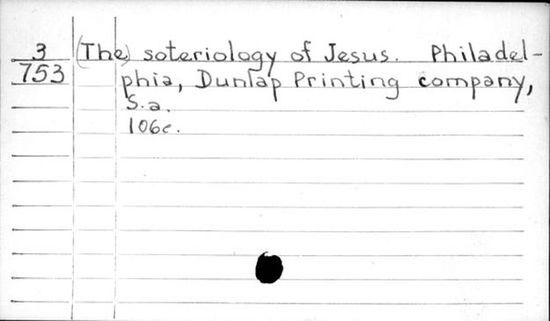 3 (The) soteriology of Jesus. Philadel-
753 phia, Dunlap Printing company,
S.a.
106c.